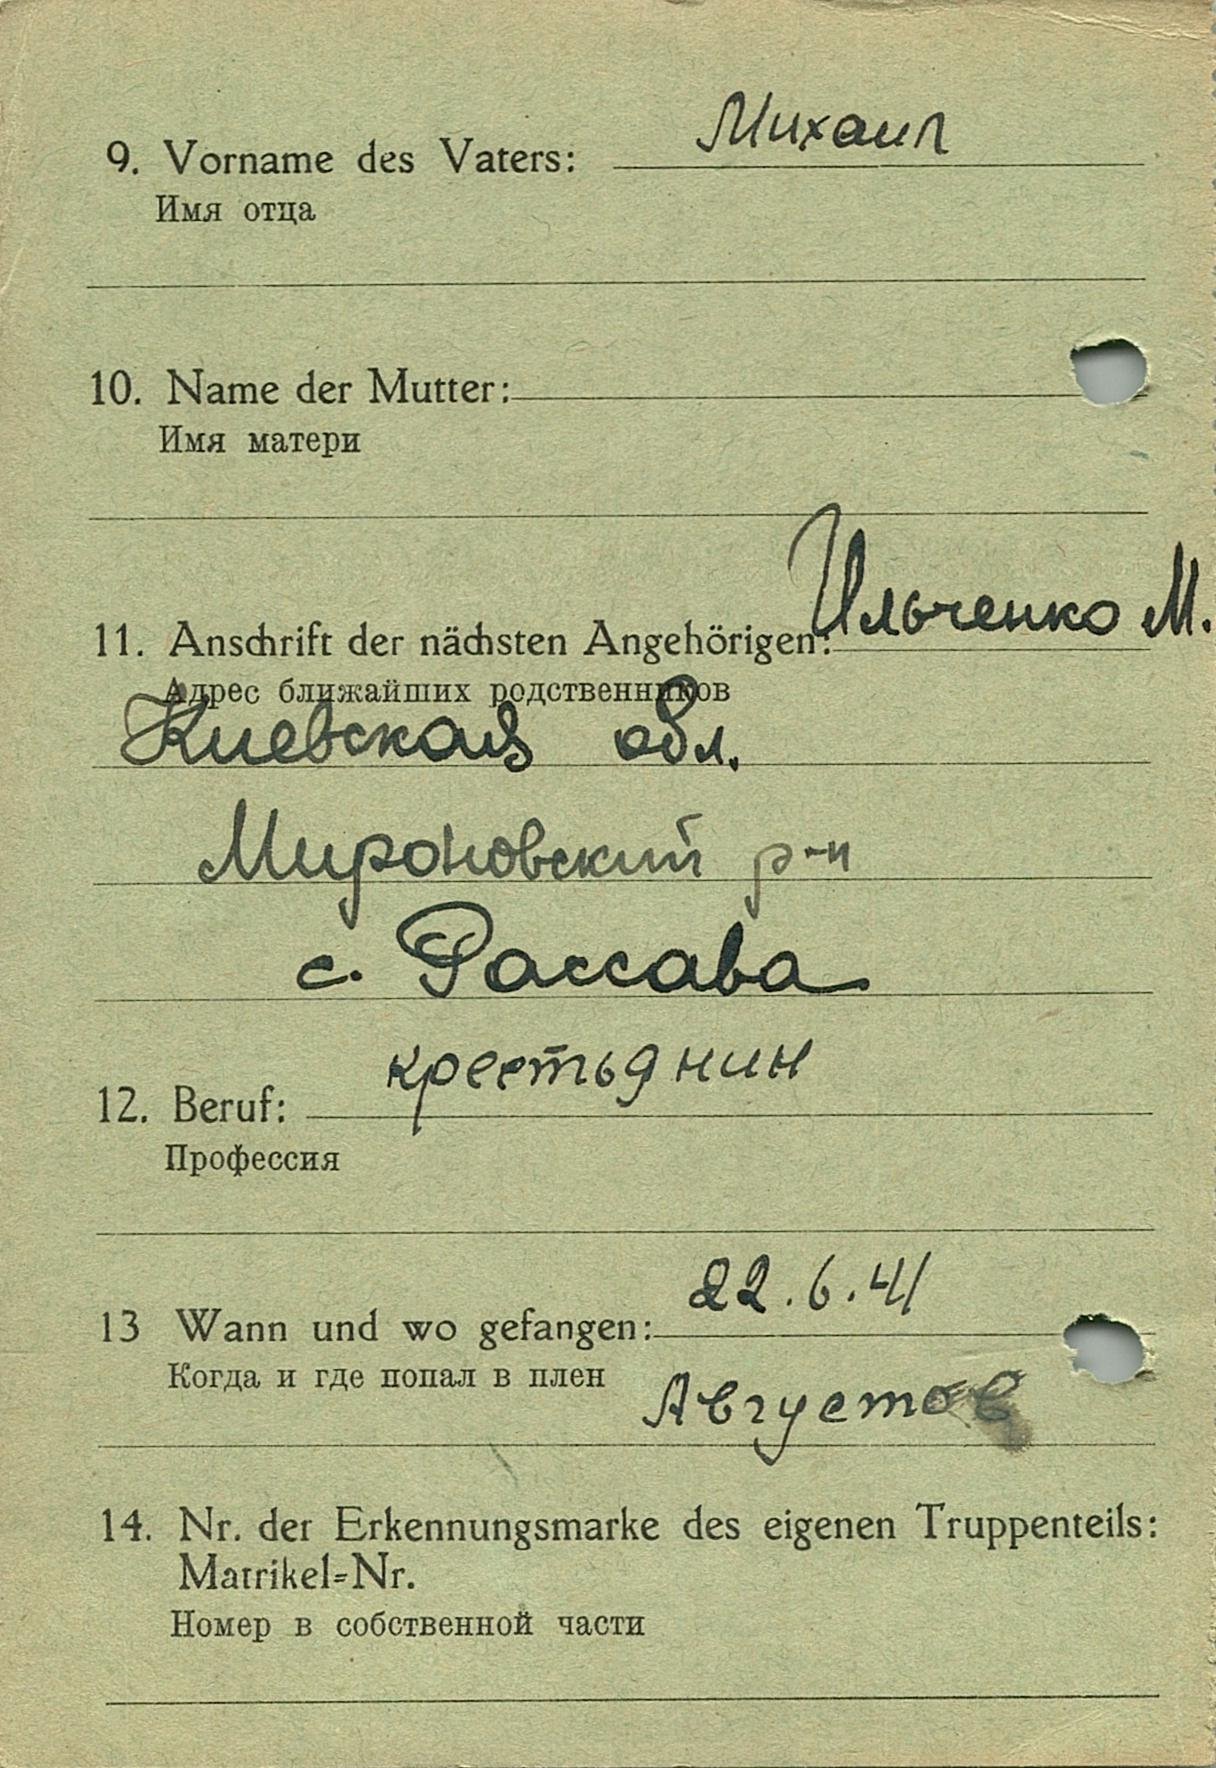 9. Vorname des Vaters: Михаил
Имя отца
10. Name der Mutter:
Имя матери
11. Anschrift der nächsten Angehörigen: Ильченко М.
Адрес ближайших родственников
Киевская обл.
Мироновский р-н
с. Рассава
12. Beruf: крестьянин
Профессия
13 Wann und wo gefangen: 22.6.41
Когда и где попал в плен
Августов
14. Nr. der Erkennungsmarke des eigenen Truppenteils:
Matrikel=Nr.
Номер в собственной части